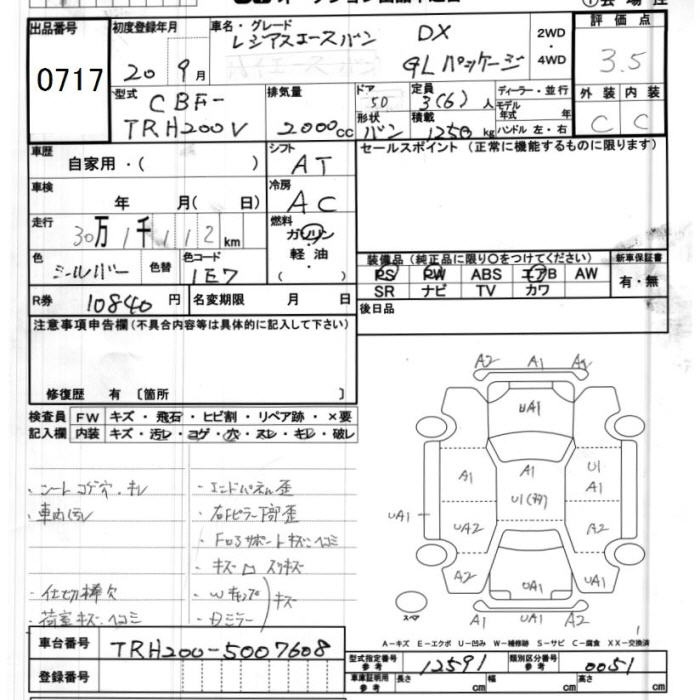 出品番号
0717
初度登録年月
20 9月
車名・グレード
レジアスエースバン DX
GLパッケージ
2WD
・
4WD
評価点
3.5
型式
CBF-
TRH200V
排気量
2000cc
ドア
5D
形状
バン
定員
3(6)人
積載
1250kg
ディーラー・並行
モデル
年式 年
ハンドル 左・右
外装 内装
C C
車歴
自家用・( )
シフト
AT
セールスポイント(正常に機能するものに限ります)
車検
年 月( 日)
冷房
AC
走行
30万1千112km
燃料
ガソリン
軽油
・( )・
色
シールバー
色替
色コード
1E7
装備品(純正品に限り○をつけてください)
PS PW ABS エアB AW
SR ナビ TV カワ
新車保証書
有・無
R券
10840円
名変期限 月 日
後日品
注意事項申告欄(不具合内容等は具体的に記入して下さい)
修復歴 有 〔箇所 〕
検査員
記入欄
FW キズ・飛石・ヒビ割・リペア跡・×要
内装 キズ・汚レ・コゲ・穴・スレ・キレ・破レ
・シートコゲ穴・キレ
・車内汚レ
・仕切棒欠
・荷室キズ・ヘコミ
・エンドパネル歪
・右Fピラー下部歪
・Fロアサポートキズ・ヘコミ
・キズ
・Wキャップ
・ミラー
キズ
A2 A1 A2
UA1
A1 A1 U1
A1
UA1 UA2 U1 A2
A2 UA1 UA1
スペア
A1 UA1 A2
A-キズ E-エクボ U-凹み W-補修跡 S-サビ C-腐食 XX-交換済
車台番号
TRH200-5007608
登録番号
型式指定番号
参考
12591
類別区分番号
参考
0051
車庫証明用
参考
長さ cm 幅 cm 高さ cm